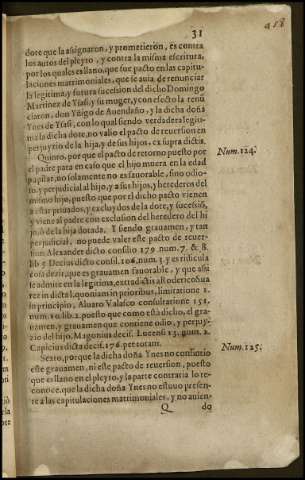 31
418
dote que la asignaron, y prometieron, es contra
los autos del pleyto, y contra la misma escritura,
por los quales es llano, que fue pacto en las capitu-
laciones matrimoniales, que se auia de renunciar
la legitima, y futura sucession del dicho Domingo
Martinez de Ysasi, y su muger, y con efecto la renū
ciaron, don Yñigo de Auendaño, y la dicha doña
Ynes de Ysasi, con lo qual siendo verdadera legiti-
ma la dicha dote, no valio el pacto de reuersion en
perjuyzio de la hija, y de sus hijos, ex supra dictis.
Quinto, porque el pacto de retorno puesto por
el padre para en caso que el hijo muera en la edad
pupilar, no solamente no es fauorable, sino odio-
so, y perjudicial al hijo, y a sus hijos, y herederos del
mismo hijo, puesto que por el dicho pacto vienen
a estar priuados, y excluydos de la dote, y sucession,
y viene al padre con exclusion del heredero del hi
jo, ò de la hija dotada. Y siendo grauamen, y tan
perjudicial, no puede valer este pacto de reuer-
sion Alexander dicto consilio 179. num. 7. & 8.
lib. 5. Decius dicto consil. 106. num. 3. y es ridicula
cosa dezir, que es grauamen fauorable, y que assi
se admite en la legitima, extra dictis
in principio, Aluaro Valasco consultatione 151.
num. 10. lib. 2. puesto que como està dicho, el gra-
uamen, y grauamen que contiene odio, y perjuy-
zio del hijo, Magonius decis. Lucensi 13. num. 2.
Capicius dicta decis. 176. per totam.
Sexto, porque la dicha doña Ynes no consintio
este grauamen, ni este pacto de reuersion, puesto
que es llano en el pleyto, y la parte contraria lo re-
conoce, que la dicha doña Ynes no estuuo presen-
te a las capitulaciones matrimoniales, y no auien-
Q do
Num. 124.
Num. 125.